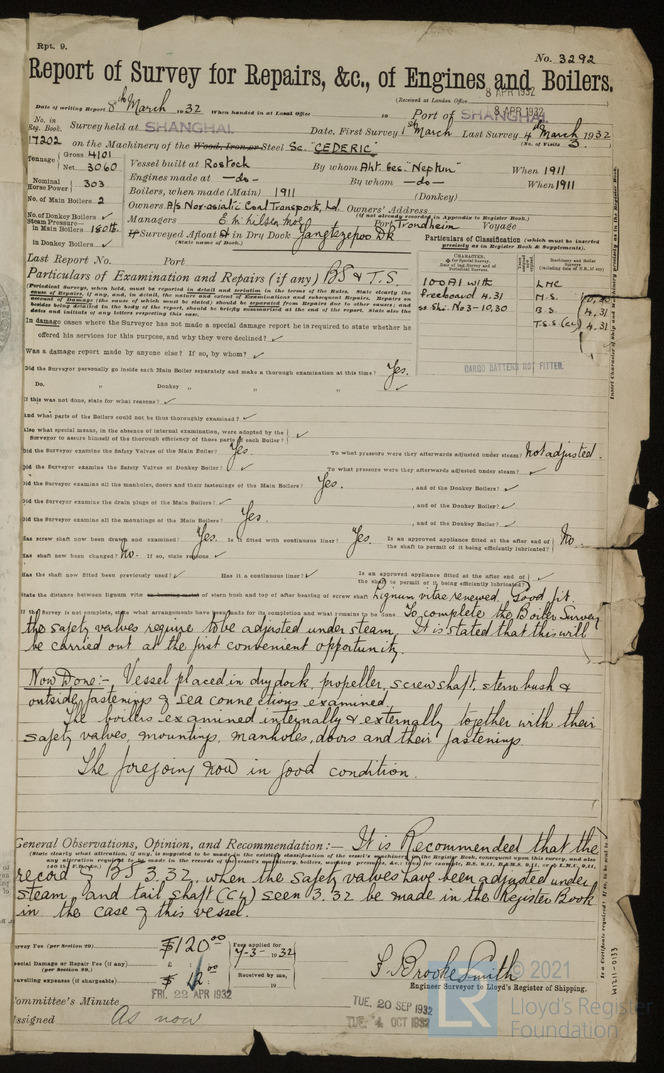 Rpt. 9.
No. 3292
Report of Survey for Repairs, &c., of Engines and Boilers.
8 APR 1932
(Received at London Office
8 APR 1932
Date of writing Report 8th March 1932 When handed in at Local Office 19 Port of SHANGHAI.
No. in Reg. Book. Survey held at SHANGHAI. Date, First Survey 1st March Last Survey 4th March 1932
(No. of Visits 3
17202 on the Machinery of the Wood, Iron or Steel Sc. "CEDERIC"
Tonnage Gross 4101
Net 3060
Vessel built at Rostock By whom Akt. Ges. "Neptun" When 1911
Engines made at —do— By whom —do— When 1911
Nominal Horse Power 303
Boilers, when made (Main) 1911 (Donkey)
No. of Main Boilers 2
Owners A/s Nor-asiatic Coal Transport, Ld. Owners' Address
(if not already recorded in Appendix to Register Book.)
No. of Donkey Boilers ✓
Managers Port Trondheim Voyage
Steam Pressure— in Main Boilers 180 lb.
in Donkey Boilers ✓
If Surveyed Afloat or in Dry Dock Yangtzepoo Dk
(State name of Dock.)
Particulars of Classification (which must be inserted precisely as in Register Book & Supplements).
Last Report No. Port
Particulars of Examination and Repairs (if any) BS & T.S
100A1 with
freeboard 4.31
ss. Shi. No 3-10,30
LMC
M.S. 10,30
B.S. 4,31
T.S.S (CL) 4,31
CARGO BATTENS NOT FITTED.
In damage cases where the Surveyor has not made a special damage report he is required to state whether he
offered his services for this purpose, and why they were declined? ✓
Was a damage report made by anyone else? If so, by whom? ✓
Did the Surveyor personally go inside each Main Boiler separately and make a thorough examination at this time? Yes.
Do. " Donkey " " " ✓
If this was not done, state for what reasons? ✓
And what parts of the Boilers could not be thoroughly examined? ✓
Also what special means, in the absence of internal examination, were adopted by the
Surveyor to assure himself of the thorough efficiency of those parts of each Boiler? ✓
Did the Surveyor examine the Safety Valves of the Main Boiler? Yes. To what pressure were they afterwards adjusted under steam? Not adjusted.
Did the Surveyor examine the Safety Valves of Donkey Boiler? ✓ To what pressure were they afterwards adjusted under steam? ✓
Did the Surveyor examine all the manholes, doors and their fastenings of the Main Boilers? Yes. , and of the Donkey Boilers? ✓
Did the Surveyor examine the drain plugs of the Main Boilers? ✓ , and of the Donkey Boilers? ✓
Did the Surveyor examine all the mountings of the Main Boilers? Yes. , and of the Donkey Boilers? ✓
Has screw shaft now been drawn and examined? Yes. Is it fitted with continuous liner? Yes. Is an approved appliance fitted at the after end of
the shaft to permit of it being efficiently lubricated? No
Has shaft now been changed? No. If so, state reasons ✓
Has the shaft now fitted been previously used? ✓ Has it a continuous liner? ✓ Is an approved appliance fitted at the after end of
the shaft to permit of it being efficiently lubricated? ✓
State the distance between lignum vitæ or bearing metal of stern bush and top of after bearing of screw shaft Lignum vitae renewed. Good fit.
If the Survey is not complete, state what arrangements have been made for its completion and what remains to be done To complete the Boiler Survey
the safety valves require to be adjusted under steam. It is stated that this will
be carried out at the first convenient opportunity.
Now Done:- Vessel placed in dry dock, propeller, screwshaft, stern bush &
outside fastenings of sea connections examined.
The boilers examined internally & externally together with their
safety valves, mountings, manholes, doors and their fastenings.
The foregoing now in good condition.
General Observations, Opinion, and Recommendation:— It is Recommended that the
record of BS 3.32, when the safety valves have been adjusted under
steam, and tail shaft (CL) seen 3.32 be made in the Register Book
in the case of this vessel.
Survey Fee (per Section 29) $120.00
Fees applied for 7-3-1932
Special Damage or Repair Fee (if any) (per Section 29.)
Received by me,
19
Travelling expenses (if chargeable) $ 12.00
F. Brooke Smith
Engineer Surveyor to Lloyd's Register of Shipping.
Committee's Minute FRI. 22 APR 1932
TUE. 20 SEP 1932
TUE. 4 OCT 1932
Assigned As now
W1211-0133
© 2021
LR
Lloyd's Register
Foundation